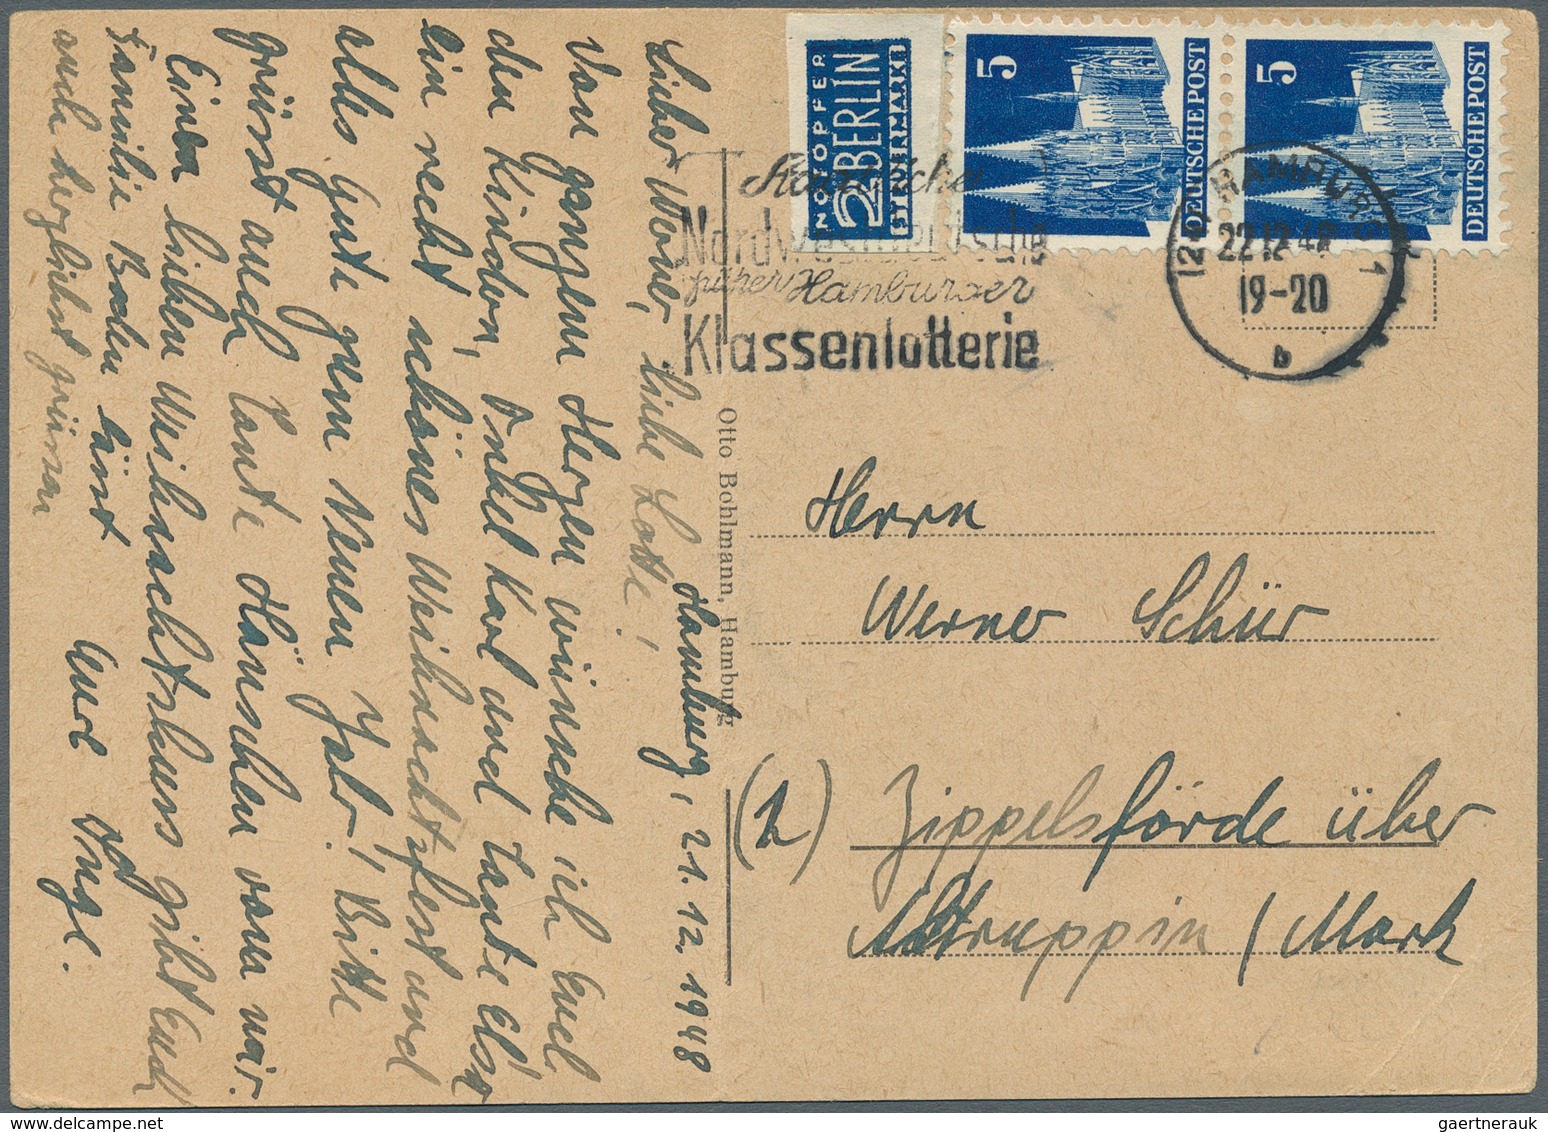 Hamburg, 21.12.1948
Lieber Werner, liebe Lotte!
Von ganzem Herzen wünsche ich Euch
den Kindern, Onkel Karl und Tante Else
ein recht schönes Weihnachtsfest und
alles Gute zum Neuen Jahr! Bitte
grüsst auch Tante Hänschen von mir.
Einen lieben Weihnachtskuss gibt Euch
Eure Inge.
Familie Baden lässt
auch herzlichst grüssen
Otto Bohlmann, Hamburg
NOTOPFER
2 BERLIN
STEUERMARKE
5
DEUTSCHE POST
5
DEUTSCHE POST
Nordwestdeutsche
früher Hamburger
Klassenlotterie
HAMBURG 1
22.12.48
19-20
b
Herrn
Werner Schür
(2) Zippelsförde über
Altruppin / Mark
gaertnerauk